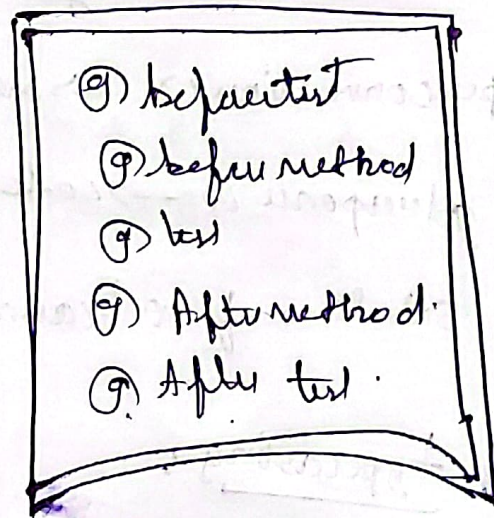 @ beforetest
@ before method
@ test
@ After method
@ After test.